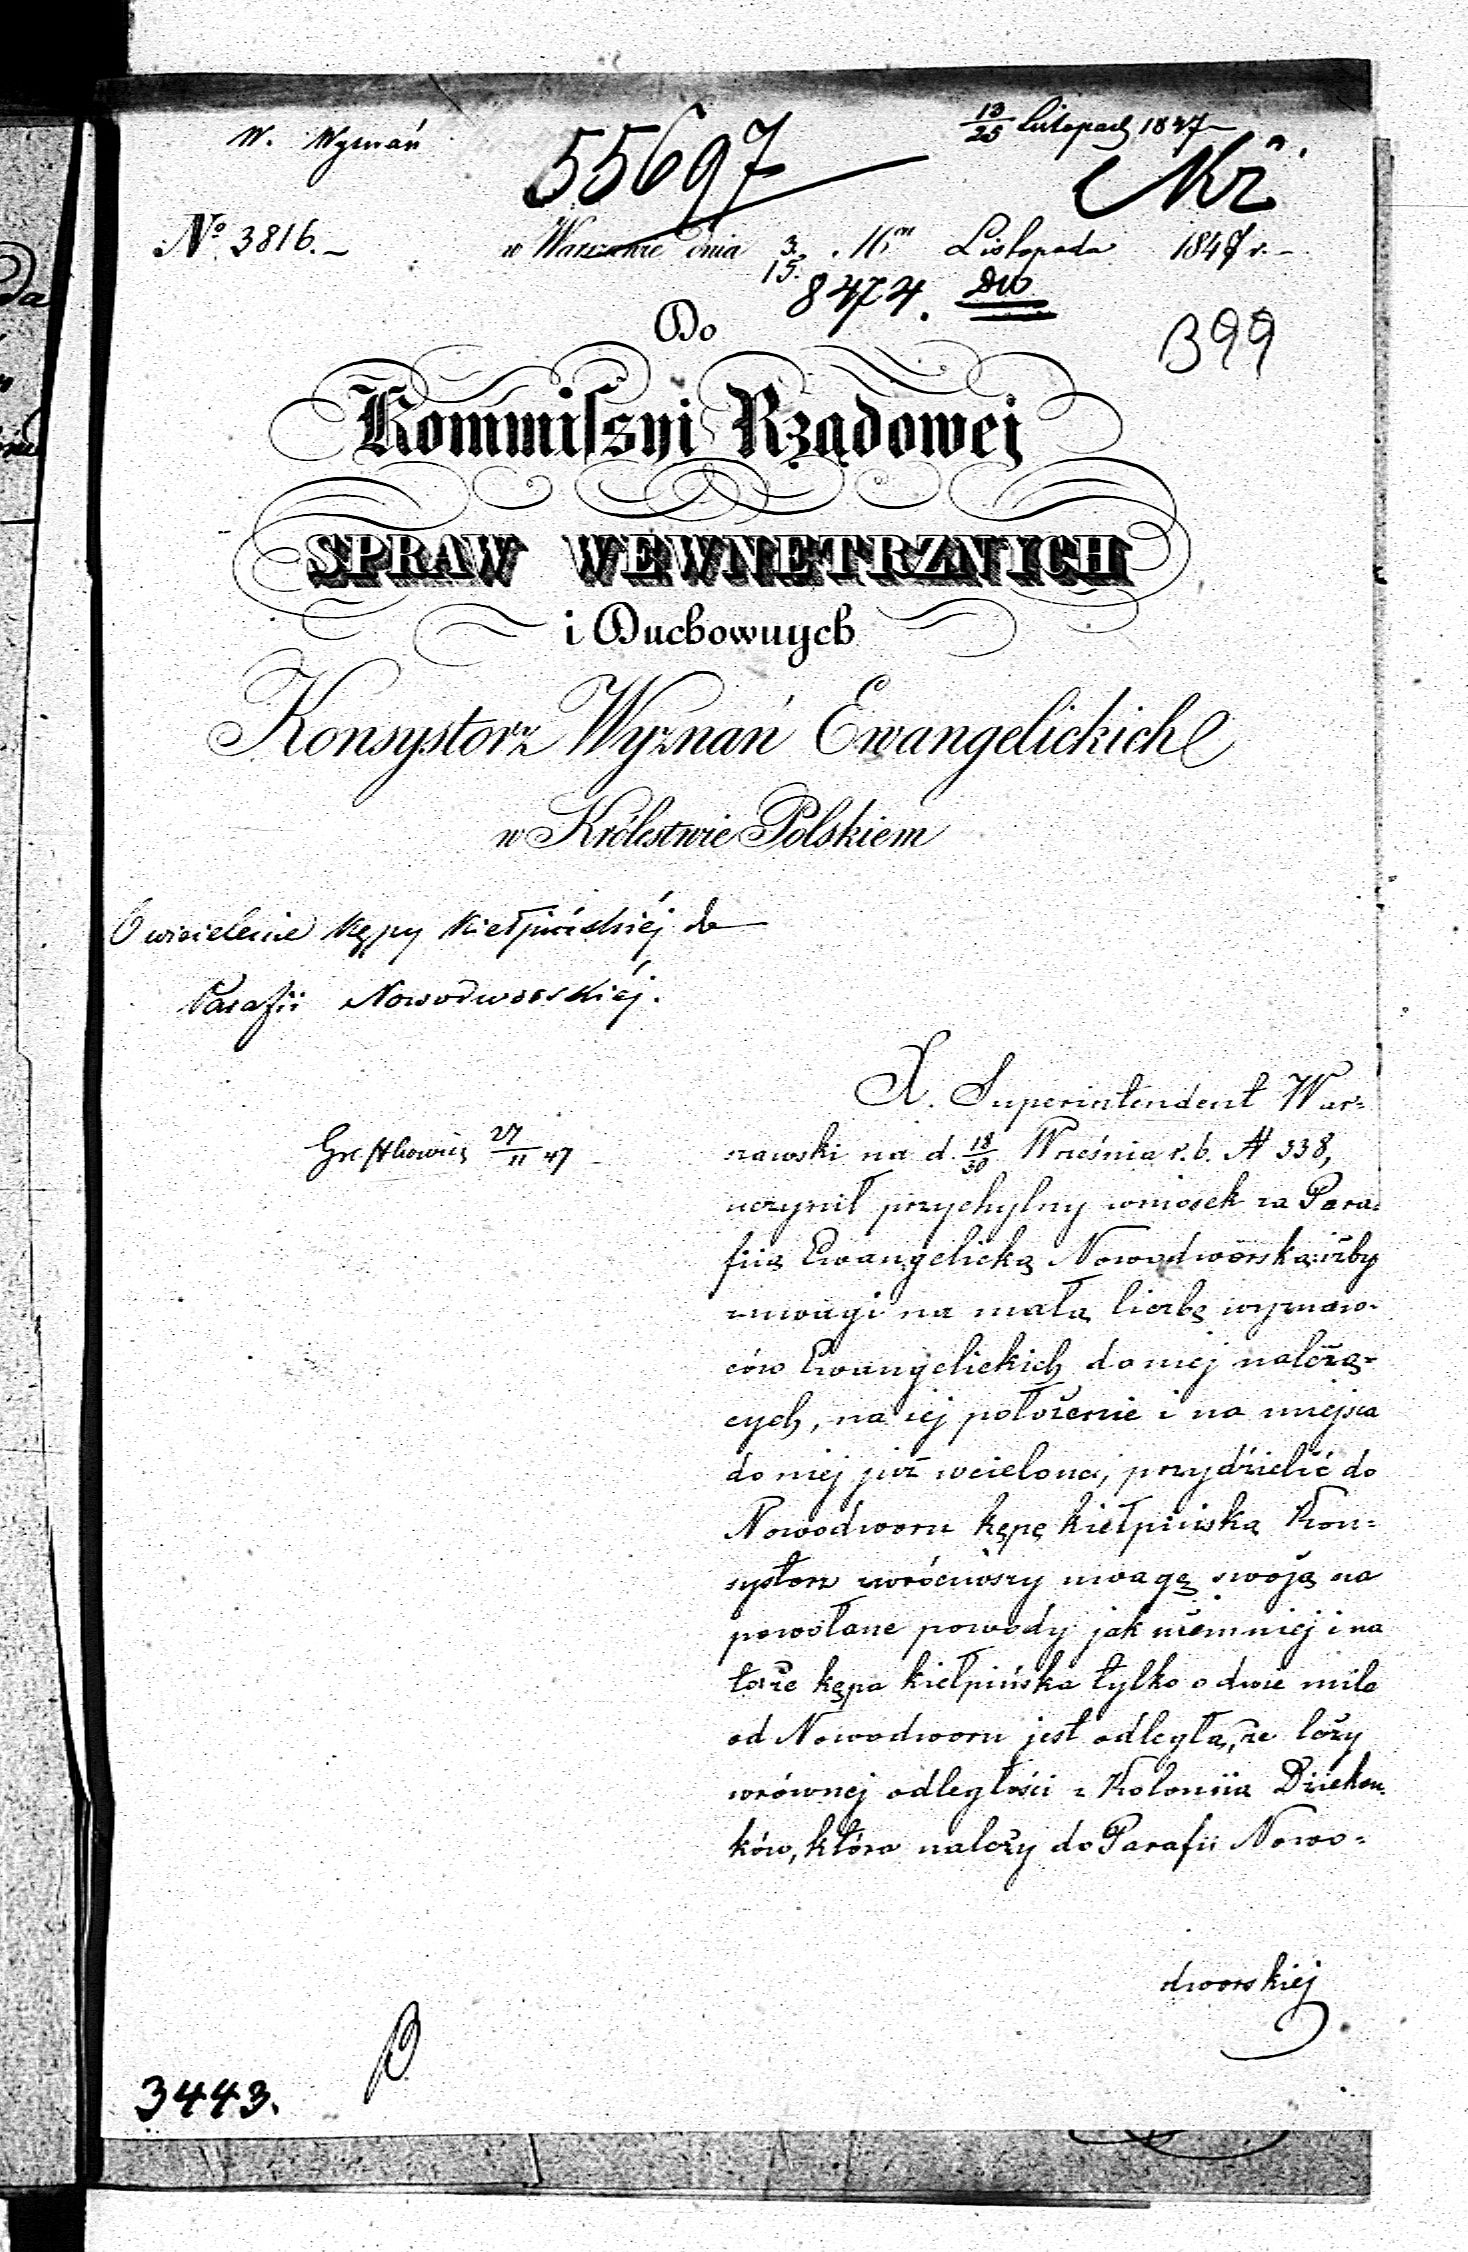 W. Wyznań
55697
13/25 Listopada 1847
No 3816.
w Warszawie dnia 3/15 Listopada 1847 r.
8474.
Do
399
Kommissyi Rządowej
SPRAW WEWNETRZNYCH
i Duchownych
Konsystorz Wyznań Ewangelickich
w Królestwie Polskiem
O wcielenie Kępy Kiełpińskiéj do
Parafii Nowodworskiéj.
X. Superintendent War=
27/11 47
szawski na d. 18/30 Września r. b. N 338,
uczynił przychylny wniosek za Para=
fiią Ewangelicką Nowodworską: iżby
z uwagi na małą liczbę wyznaw=
ców Ewangelickich do niej należą=
cych, na iej położenie i na miejsca
do niej już wcielone, przydzielić do
Nowodworu kępę kiełpińską Kon=
systorz zwróciwszy uwagę swoją na
powołane powody jak niemniej i na
to że kępa kiełpińska tylko o dwie mile
od Nowodworu jest odległą, że leży
w równej odległości z Koloniią Dziekan=
ków, która należy do Parafii Nowo=
dworskiej
3443.